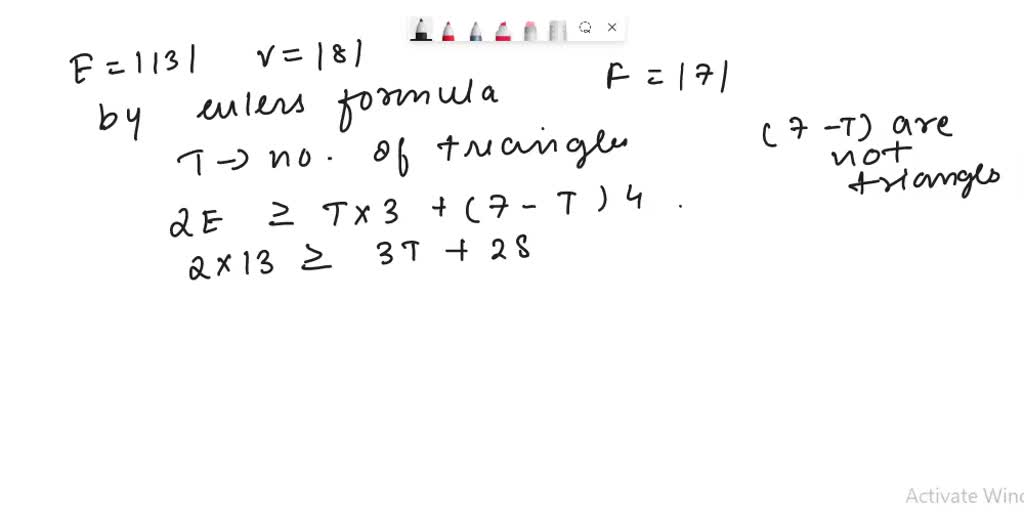 E = |13| V = |8| F = |7|
by eulers formula
T → no. of triangles
(7 - T) are
not
triangles
2E ≥ T × 3 + (7 - T) 4 .
2 × 13 ≥ 3T + 28
Activate Wind